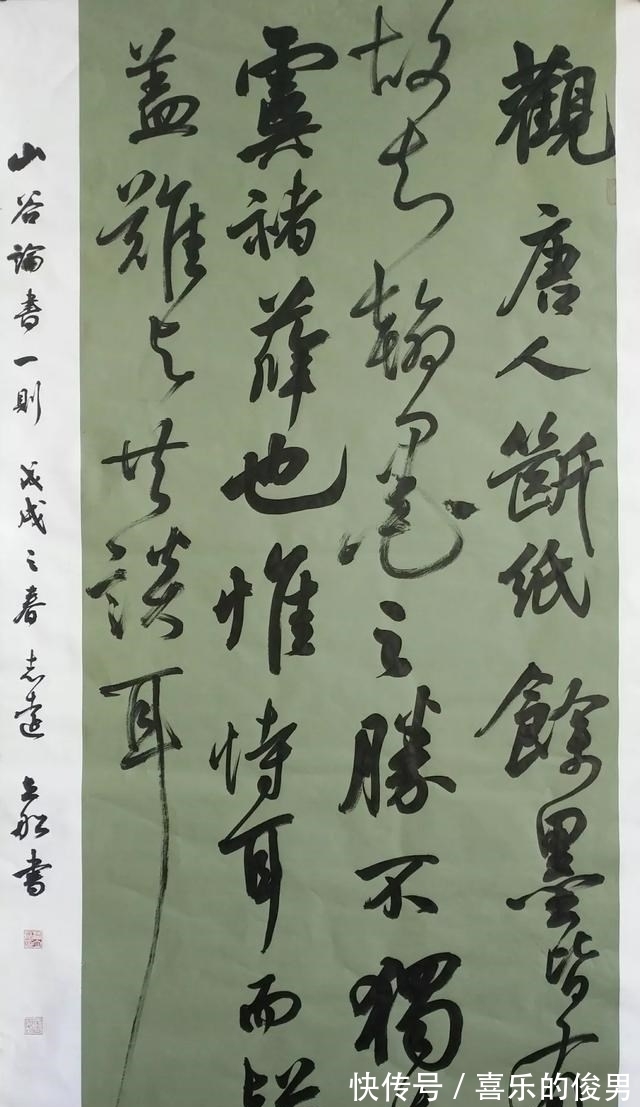 觀唐人斷紙餘墨皆有
故知翰墨之勝不獨
虞褚薛也惟恃耳而
蓋難與共談耳
山谷論書一則 戊戌之春 志遠 書
快传号 / 喜乐的俊男